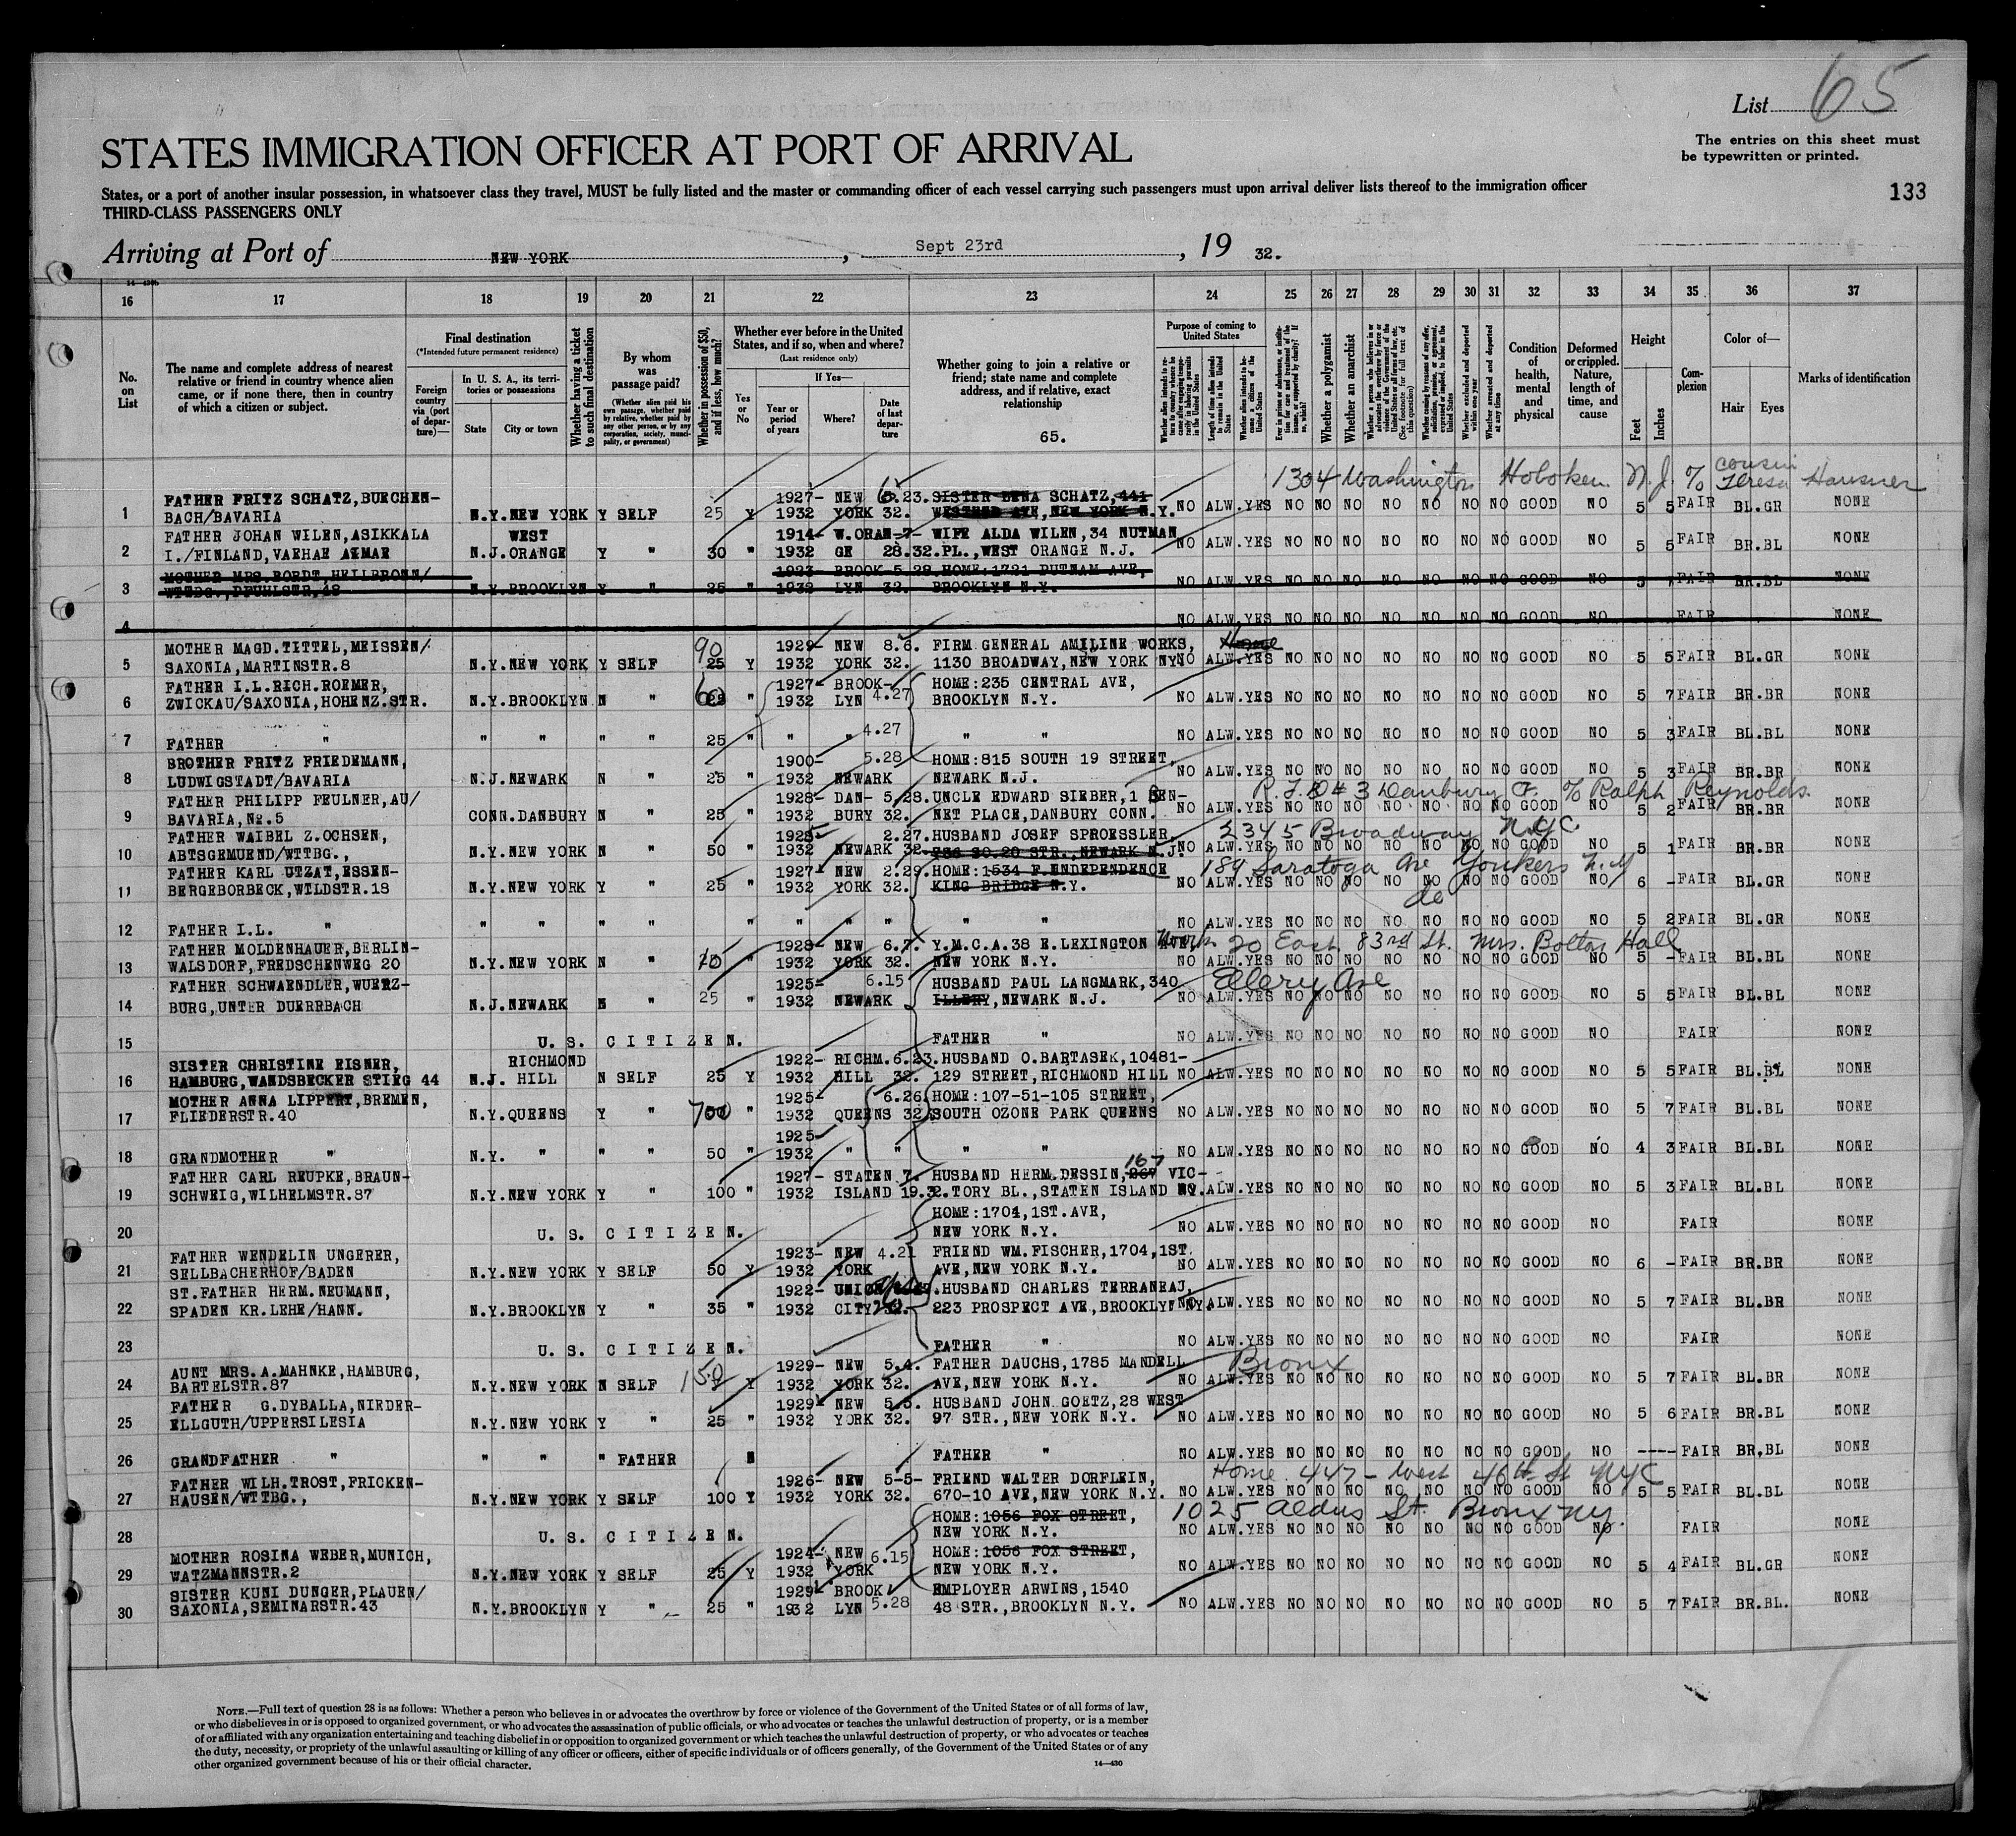 List 65
STATES IMMIGRATION OFFICER AT PORT OF ARRIVAL
The entries on this sheet must
be typewritten or printed.
States, or a port of another insular possession, in whatsoever class they travel, MUST be fully listed and the master or commanding officer of each vessel carrying such passengers must upon arrival deliver lists thereof to the immigration officer
THIRD-CLASS PASSENGERS ONLY
133
Arriving at Port of NEW YORK, Sept 23rd, 19 32.
16 17 18 19 20 21 22 23 24 25 26 27 28 29 30 31 32 33 34 35 36 37
No. on List
The name and complete address of nearest relative or friend in country whence alien came, or if none there, then in country of which a citizen or subject.
Final destination
(*Intended future permanent residence)
Foreign country via (port of departure)—
In U. S. A., its territories or possessions
State City or town
Whether having a ticket to such final destination
By whom was passage paid?
(Whether alien paid his own passage, whether paid by relative, whether paid by any other person, or by any corporation, society, municipality, or government)
Whether in possession of $50, and if less, how much?
Whether ever before in the United States, and if so, when and where?
(Last residence only)
Yes or No
If Yes—
Year or period of years
Where?
Date of last departure
Whether going to join a relative or friend; state name and complete address, and if relative, exact relationship
65.
Purpose of coming to United States
Length of time alien intends to remain in the United States
Whether alien intends to become a citizen of the United States
Whether a polygamist
Whether an anarchist
Whether excluded and deported within one year
Whether arrested and deported at any time
Condition of health, mental and physical
Deformed or crippled. Nature, length of time, and cause
Height
Feet Inches
Complexion
Color of—
Hair Eyes
Marks of identification
1304 Washington Hoboken N.J. % cousin Teresa Hausner
1 FATHER FRITZ SCHATZ, BUECHEN-
BACH/BAVARIA N.Y. NEW YORK Y SELF 25 Y 1927-1932 NEW YORK 6.23.32. SISTER LENA SCHATZ, 441 WESTEND AVE, NEW YORK N.Y. NO ALW. YES NO NO NO NO NO NO NO GOOD NO 5 5 FAIR BL.GR NONE
2 FATHER JOHAN WILEN, ASIKKALA
I./FINLAND, VAEHAE AEMAE N.J. WEST ORANGE Y " 30 " 1914-1932 W.ORANGE 7-28.32. WIFE ALDA WILEN, 34 NUTMAN PL., WEST ORANGE N.J. NO ALW. YES NO NO NO NO NO NO NO GOOD NO 5 5 FAIR BR.BL NONE
3 MOTHER MRS. BORDT, HEILBRONN/
WTTBG., PFUHLSTR, 48 N.Y. BROOKLYN Y " 25 " 1923 1932 BROOKLYN 5.28.32. HOME: 1721 PUTNAM AVE, BROOKLYN N.Y. NO ALW. YES NO NO NO NO NO NO NO GOOD NO 5 7 FAIR BR.BL NONE
4 NO ALW. YES NO NO NO NO NO NO NO GOOD NO FAIR NONE
5 MOTHER MAGD. TITTEL, MEISSEN/
SAXONIA, MARTINSTR. 8 N.Y. NEW YORK Y SELF 25 90 Y 1929-1932 NEW YORK 8.6.32. FIRM GENERAL AMILINE WORKS, 1130 BROADWAY, NEW YORK NY. Home NO ALW. YES NO NO NO NO NO NO NO GOOD NO 5 5 FAIR BL.GR NONE
6 FATHER I.L. RICH. ROEMER,
ZWICKAU/SAXONIA, HOHENZ. STR. N.Y. BROOKLYN N " 60 " 1927-1932 BROOKLYN 4.27 HOME: 235 CENTRAL AVE, BROOKLYN N.Y. NO ALW. YES NO NO NO NO NO NO NO GOOD NO 5 7 FAIR BR.BR NONE
7 FATHER " " " " " 25 " " " 4.27 " " NO ALW. YES NO NO NO NO NO NO NO GOOD NO 5 3 FAIR BL.BL NONE
8 BROTHER FRITZ FRIEDEMANN,
LUDWIGSTADT/BAVARIA N.J. NEWARK N " 25 " 1900-1932 NEWARK 5.28 HOME: 815 SOUTH 19 STREET, NEWARK N.J. NO ALW. YES NO NO NO NO NO NO NO GOOD NO 5 3 FAIR BR.BR NONE
R.F.D # 3 Danbury Ct. % Ralph Reynolds
9 FATHER PHILIPP FEULNER, AU/
BAVARIA, Nr. 5 CONN. DANBURY N " 25 " 1928-1932 DANBURY 5.28.32. UNCLE EDWARD SIEBER, 1 BENNET PLACE, DANBURY CONN. NO ALW. YES NO NO NO NO NO NO NO GOOD NO 5 2 FAIR BR.BR NONE
2345 Broadway N.Y.C.
10 FATHER WAIBEL Z. OCHSEN,
ABTSGEMUEND/WTTBG., N.Y. NEW YORK N " 50 " 1925 1932 NEWARK 2.27.32. HUSBAND JOSEF SPROESSLER, 756 SO. 20 STR., NEWARK N.J. NO ALW. YES NO NO NO NO NO NO NO GOOD NO 5 1 FAIR BR.BR NONE
189 Saratoga Ave Yonkers N.Y
11 FATHER KARL UTZAT, ESSEN-
BERGEBORBECK, WILDSTR. 18 N.Y. NEW YORK Y " 25 " 1927-1932 NEW YORK 2.29.32. HOME: 1534 F. ENDEPENDENCE KING BRIDGE N.Y. NO ALW. YES NO NO NO NO NO NO NO GOOD NO 6 - FAIR BL.GR NONE
do
12 FATHER I.L. " " " " " " " " " " " NO ALW. YES NO NO NO NO NO NO NO GOOD NO 5 2 FAIR BL.GR NONE
Work 20 East 83rd St. Mrs. Bolton Hall
13 FATHER MOLDENHAUER, BERLIN-
WALSDORF, FREDSCHENWEG 20 N.Y. NEW YORK N " 10 " 1928-1932 NEW YORK 6.7.32. Y.M.C.A. 38 E. LEXINGTON AVE, NEW YORK N.Y. NO ALW. YES NO NO NO NO NO NO NO GOOD NO 5 - FAIR BL.BL NONE
14 FATHER SCHWAENDLER, WUERZ-
BURG, UNTER DUERRBACH N.J. NEWARK N " 25 " 1925-1932 NEWARK 6.15 HUSBAND PAUL LANGMARK, 340 ILLERY, NEWARK N.J. Ellery Ave NO ALW. YES NO NO NO NO NO NO NO GOOD NO 5 5 FAIR BL.BL NONE
15 U. S. CITIZEN. FATHER " NO ALW. YES NO NO NO NO NO NO NO GOOD NO FAIR NONE
16 SISTER CHRISTINE EISNER,
HAMBURG, WANDSBECKER STIEG 44 N.J. RICHMOND HILL N SELF 25 Y 1922-1932 RICHM. HILL 6.23.32. HUSBAND O. BARTASEK, 10481-129 STREET, RICHMOND HILL NO ALW. YES NO NO NO NO NO NO NO GOOD NO 5 5 FAIR BL.BL NONE
17 MOTHER ANNA LIPPERT, BREMEN,
FLIEDERSTR. 40 N.Y. QUEENS Y " 700 " 1925-1932 QUEENS 6.26.32. HOME: 107-51-105 STREET, SOUTH OZONE PARK QUEENS NO ALW. YES NO NO NO NO NO NO NO GOOD NO 5 7 FAIR BL.BL NONE
18 GRANDMOTHER " N.Y. " " " 50 " 1925-1932 " " " " NO ALW. YES NO NO NO NO NO NO NO GOOD NO 4 3 FAIR BL.BL NONE
19 FATHER CARL REUPKE, BRAUN-
SCHWEIG, WILHELMSTR. 87 N.Y. NEW YORK Y " 100 " 1927-1932 STATEN ISLAND 7.19.32. HUSBAND HERM. DESSIN, 267 167 VICTORY BL., STATEN ISLAND NY. NO ALW. YES NO NO NO NO NO NO NO GOOD NO 5 3 FAIR BL.BL NONE
20 U. S. CITIZEN. HOME: 1704, 1ST. AVE, NEW YORK N.Y. NO ALW. YES NO NO NO NO NO NO NO GOOD NO FAIR NONE
21 FATHER WENDELIN UNGERER,
SELLBACHERHOF/BADEN N.Y. NEW YORK Y SELF 50 Y 1923-1932 NEW YORK 4.21 FRIEND WM. FISCHER, 1704, 1ST. AVE, NEW YORK N.Y. NO ALW. YES NO NO NO NO NO NO NO GOOD NO 6 - FAIR BR.BR NONE
22 ST. FATHER HERM. NEUMANN,
SPADEN KR. LEHE/HANN. N.Y. BROOKLYN Y " 35 " 1922-1932 UNION CITY HUSBAND CHARLES TERRANEAJ, 223 PROSPECT AVE, BROOKLYN NY. NO ALW. YES NO NO NO NO NO NO NO GOOD NO 5 7 FAIR BL.BR NONE
23 U. S. CITIZEN. FATHER " NO ALW. YES NO NO NO NO NO NO NO GOOD NO FAIR NONE
24 AUNT MRS. A. MAHNKE, HAMBURG,
BARTELSTR. 87 N.Y. NEW YORK N SELF 150 Y 1929-1932 NEW YORK 5.4.32. FATHER DAUCHS, 1785 MANDELL AVE, NEW YORK N.Y. Bronx NO ALW. YES NO NO NO NO NO NO NO GOOD NO 5 7 FAIR BL.BR NONE
25 FATHER G. DYBALLA, NIEDER-
ELLGUTH/UPPERSILESIA N.Y. NEW YORK Y " 25 " 1929-1932 NEW YORK 5.5.32. HUSBAND JOHN GOETZ, 28 WEST 97 STR., NEW YORK N.Y. NO ALW. YES NO NO NO NO NO NO NO GOOD NO 5 6 FAIR BR.BL NONE
26 GRANDFATHER " " " " FATHER N FATHER " NO ALW. YES NO NO NO NO NO NO NO GOOD NO ---- FAIR BR,BL NONE
Home 447 - West 46th St NYC
27 FATHER WILH. TROST, FRICKEN-
HAUSEN/WTTBG., N.Y. NEW YORK Y SELF 100 Y 1926-1932 NEW YORK 5-5-32. FRIEND WALTER DORFLEIN, 670-10 AVE, NEW YORK N.Y. NO ALW. YES NO NO NO NO NO NO NO GOOD NO 5 5 FAIR BL.BL NONE
1025 Aldus St. Bronx NY.
28 U. S. CITIZEN. HOME: 1056 FOX STREET, NEW YORK N.Y. NO ALW. YES NO NO NO NO NO NO NO GOOD NO FAIR NONE
29 MOTHER ROSINA WEBER, MUNICH,
WATZMANNSTR. 2 N.Y. NEW YORK Y SELF 25 Y 1924-1932 NEW YORK 6.15 HOME: 1056 FOX STREET, NEW YORK N.Y. NO ALW. YES NO NO NO NO NO NO NO GOOD NO 5 4 FAIR BL.GR NONE
30 SISTER KUNI DUNGER, PLAUEN/
SAXONIA, SEMINARSTR. 43 N.Y. BROOKLYN Y " 25 " 1929 1932 BROOKLYN 5.28 EMPLOYER ARWINS, 1540 48 STR., BROOKLYN N.Y. NO ALW. YES NO NO NO NO NO NO NO GOOD NO 5 7 FAIR BR.BL. NONE
NOTE.—Full text of question 28 is as follows: Whether a person who believes in or advocates the overthrow by force or violence of the Government of the United States or of all forms of law,
or who disbelieves in or is opposed to organized government, or who advocates the assassination of public officials, or who advocates or teaches the unlawful destruction of property, or is a member
of or affiliated with any organization entertaining and teaching disbelief in or opposition to organized government or which teaches the unlawful destruction of property, or who advocates or teaches
the duty, necessity, or propriety of the unlawful assaulting or killing of any officer or officers, either of specific individuals or of officers generally, of the Government of the United States or of any
other organized government because of his or their official character.
14—430